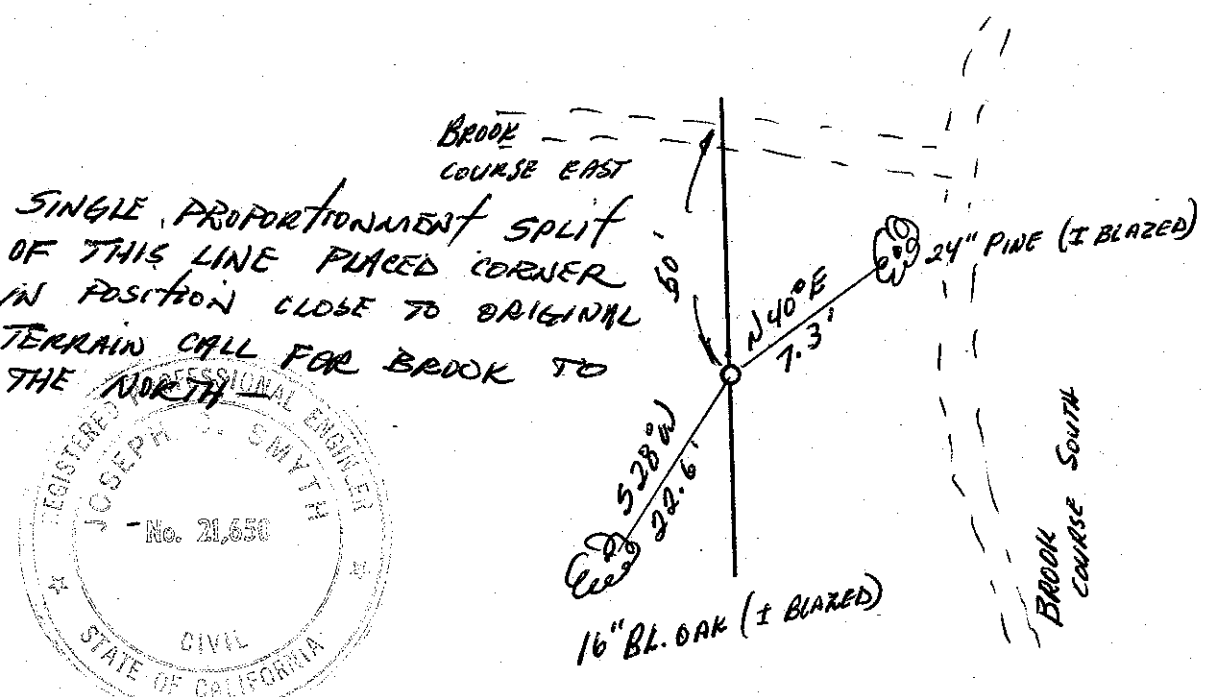 BROOK
COURSE EAST
SINGLE PROPORTIONMENT SPLIT
OF THIS LINE PLACED CORNER
IN POSITION CLOSE TO ORIGINAL
TERRAIN CALL FOR BROOK TO
THE NORTH —
60'
N40°E
7.3'
24" PINE (I BLAZED)
S28°W
22.6'
16" BL. OAK (I BLAZED)
BROOK
COURSE SOUTH
REGISTERED PROFESSIONAL ENGINEER
JOSEPH J. SMYTH
No. 21,650
CIVIL
STATE OF CALIFORNIA